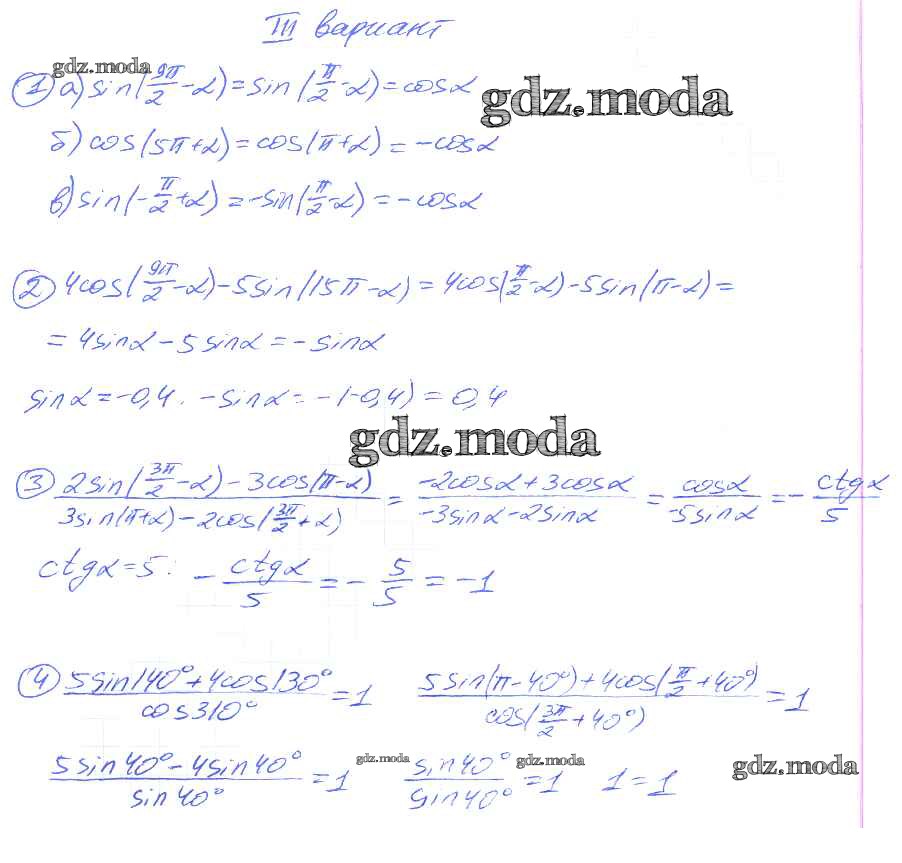 III вариант
gdz.moda
① а) sin(9π/2 - α) = sin(π/2 - α) = cosα
gdz.moda
б) cos(5π + α) = cos(π + α) = -cosα
в) sin(-π/2 + α) = -sin(π/2 - α) = -cosα
② 4cos(9π/2 - α) - 5sin(15π - α) = 4cos(π/2 - α) - 5sin(π - α) =
= 4sinα - 5sinα = -sinα
sinα = -0,4. -sinα = -(-0,4) = 0,4
gdz.moda
③ (2sin(3π/2 - α) - 3cos(π - α))/(3sin(π + α) - 2cos(3π/2 + α)) = (-2cosα + 3cosα)/(-3sinα - 2sinα) = cosα/(-5sinα) = -ctgα/5
ctgα = 5: -ctgα/5 = -5/5 = -1
④ (5sin140° + 4cos130°)/cos310° = 1 (5sin(π - 40°) + 4cos(π/2 + 40°))/cos(3π/2 + 40°) = 1
(5sin40° - 4sin40°)/sin40° = 1 sin40°/sin40° = 1 1 = 1
gdz.moda
gdz.moda
gdz.moda